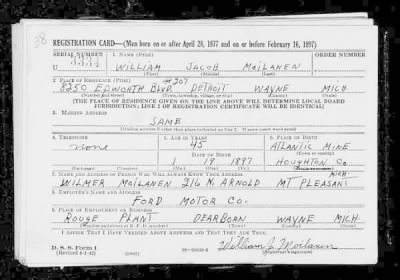 REGISTRATION CARD—(Men born on or after April 28, 1877 and on or before February 16, 1897)
SERIAL NUMBER 1. NAME (Print) ORDER NUMBER
U WILLIAM JACOB MOILANEN
(First) (Middle) (Last)
2. PLACE OF RESIDENCE (Print) #207
8250 EPWORTH BLVD. DETROIT WAYNE MICH
(Number and street) (Town, township, village, or city) (County) (State)
[THE PLACE OF RESIDENCE GIVEN ON THE LINE ABOVE WILL DETERMINE LOCAL BOARD
JURISDICTION; LINE 2 OF REGISTRATION CERTIFICATE WILL BE IDENTICAL]
3. MAILING ADDRESS
SAME
[Mailing address if other than place indicated on line 2. If same insert word same]
4. TELEPHONE 5. AGE IN YEARS 6. PLACE OF BIRTH
none 45 ATLANTIC MINE
DATE OF BIRTH (Town or county)
1 19 1897 HOUGHTON CO
(Exchange) (Number) (Mo.) (Day) (Yr.) (State or country)
7. NAME AND ADDRESS OF PERSON WHO WILL ALWAYS KNOW YOUR ADDRESS MICH
WILMER MOILANEN 216 N. ARNOLD MT PLEASANT
8. EMPLOYER'S NAME AND ADDRESS
FORD MOTOR CO.
9. PLACE OF EMPLOYMENT OR BUSINESS
ROUGE PLANT DEARBORN WAYNE MICH
(Number and street or R. F. D. number) (Town) (County) (State)
I AFFIRM THAT I HAVE VERIFIED ABOVE ANSWERS AND THAT THEY ARE TRUE.
D. S. S. Form 1
(Revised 4-1-42) (over) William J. Moilanen
(Registrant's signature)